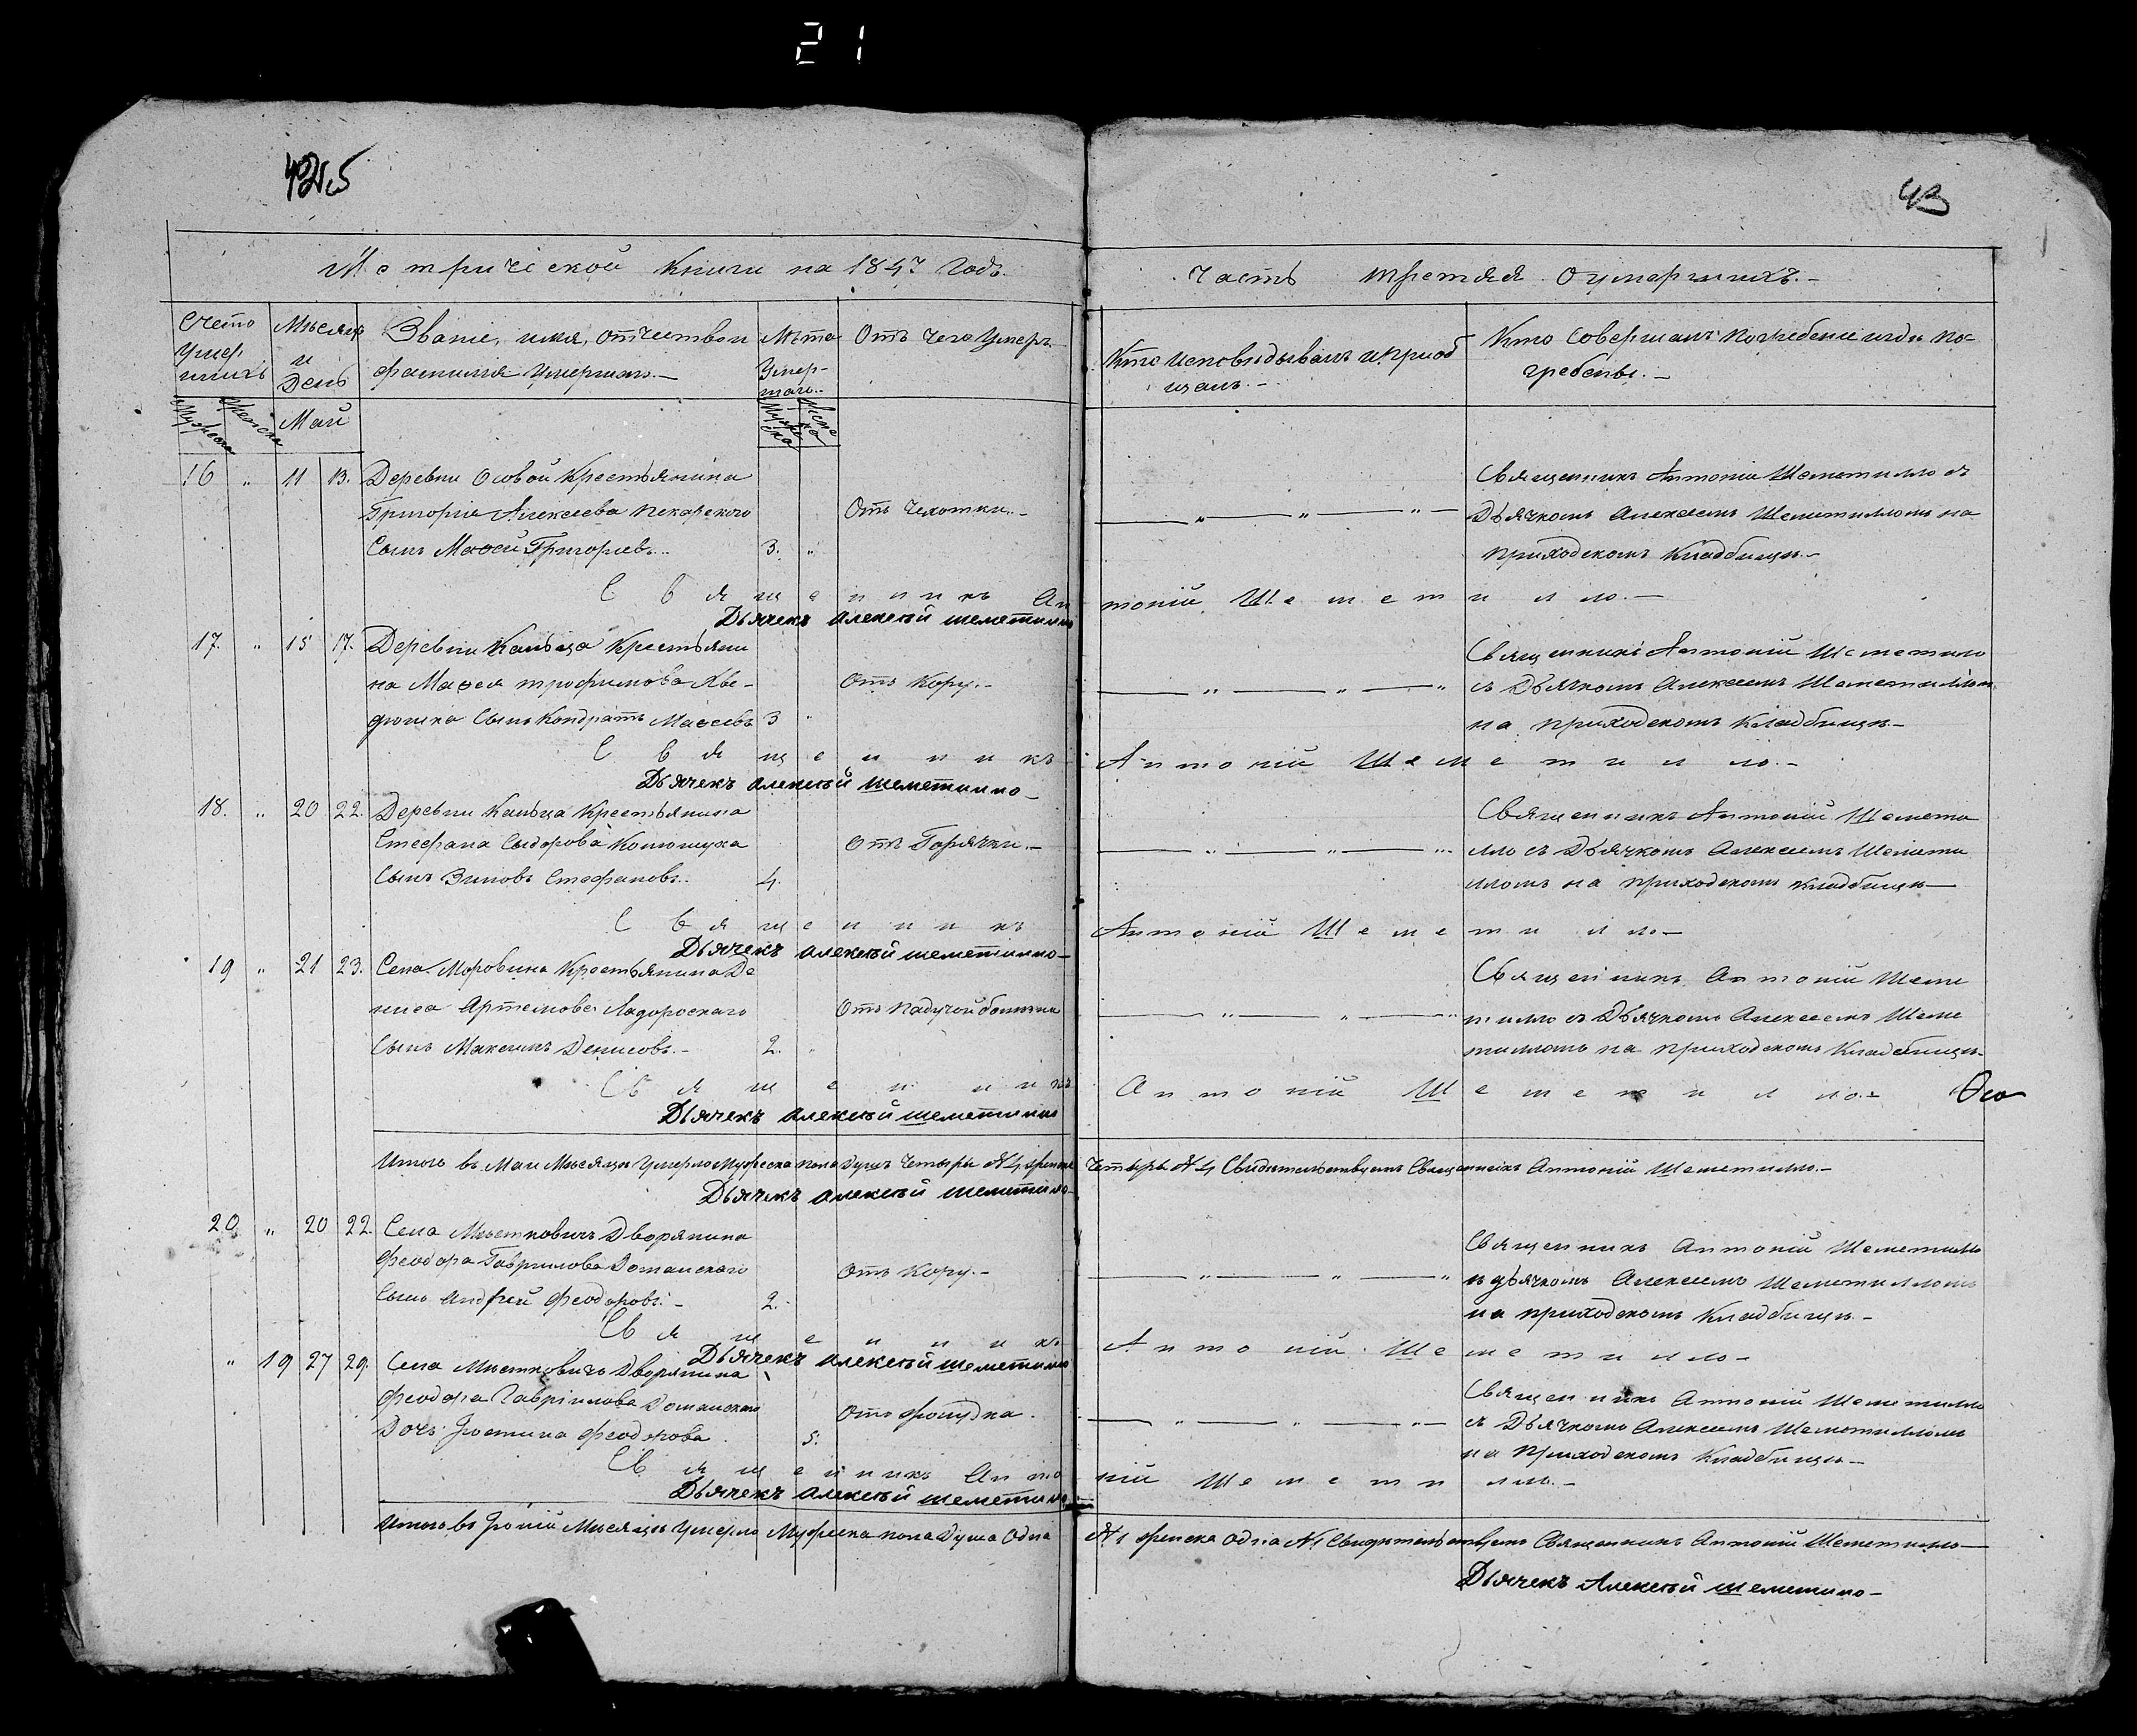 21
43
Метрической Книги на 1847 Годъ.
Часть третяя о умершихъ.-
Счетъ умерших
Мѣсяцъ и День
Званіе, имя, отчество и фамилия умершаго.-
Лѣта Умершаго.
Отъ чего Умеръ
Кто исповѣдывалъ и пріобщалъ.-
Кто Совершалъ погребеніе и гдѣ погребены.-
Мужеска
Женска
Май
16 " 11 13. Деревни Осовой Крестьянина
Григорія Алексеева Пекарского
Сынъ Моѳей Григорьевъ.. 3. "
Отъ Чехотки.-
Священникъ Антоній Шеметилло съ
Дьячкомъ Алексеемъ Шеметилломъ на
приходскомъ Кладбищѣ.-
Священникъ Антоній Шеметилло.-
Дьячекъ алексѣй шеметилло
17. " 15 17. Деревни Крестьяни
на Маѳея трофимова
Сынъ Кондратъ Маѳеевъ 3 "
Отъ Кору.-
Священникъ Антоній Шеметилло
съ Дьячкомъ Алексеемъ Шеметилломъ
на приходскомъ Кладбищѣ-
Священникъ Антоній Шеметилло.-
Дьячекъ алексѣй шеметилло-
18. " 20 22. Деревни Крестьянина
Стефана Сыдорова Конюшука
Сынъ Зиновъ Стефановъ.. 4.
Отъ Горячки.-
Священникъ Антоній Шемети
лло съ Дьячкомъ Алексеемъ Шемети
лломъ на приходскомъ кладбищѣ-
Священникъ Антоній Шеметилло-
Дьячекъ алексѣй шеметилло-
19 " 21 23. Села Моровина Крестьянина Де
ниса Артемова
Сынъ Максимъ Денисовъ.- 2. "
Отъ Падучой болѣзни
Священникъ Антоній Шеме
тилло съ Дьячкомъ Алексеемъ Шеме
тилломъ на приходскомъ Кладбищѣ-
Священникъ Антоній Шеметилло.-
Дьячекъ алексѣй шеметилло
Итого въ Маи Мѣсяцѣ Умерло Мужеска пола Душъ Четыри № 4
Четыри № 4 Свидѣтельствуемъ Священникъ Антоній Шеметилло.-
Дьячекъ алексѣй шеметилло-
20 " 20 22. Села Мѣстковичъ Дворянина
Феодора Гаврилова Доманскаго
Сынъ Андрей Феодоровъ.- 2.-
Отъ Кору.-
Священникъ Антоній Шеметилло
дьячкомъ Алексеемъ Шеметилломъ
на приходскомъ Кладбищѣ.-
Священникъ Антоній Шеметилло-
Дьячекъ алексѣй шеметилло
" 19 27 29. Села Мѣстковичъ Дворянина
Феодора Гавріилова Доманскаго
Дочь Іюстина Феодорова 5.
Священникъ Антоній Шеметилло
съ Дьячкомъ Алексеемъ Шеметилломъ
на Приходскомъ Кладбищѣ-
Священникъ Антоній Шеметилло.-
Дьячекъ алексѣй шеметилло
Итого въ Іюній Мѣсяцѣ Умерло Мужеска пола Душа Одна
№ 1 женска одна № 1 Свидѣтельствуемъ Священникъ Антоній Шеметилло-
Дьячекъ Алексѣй шеметилло-